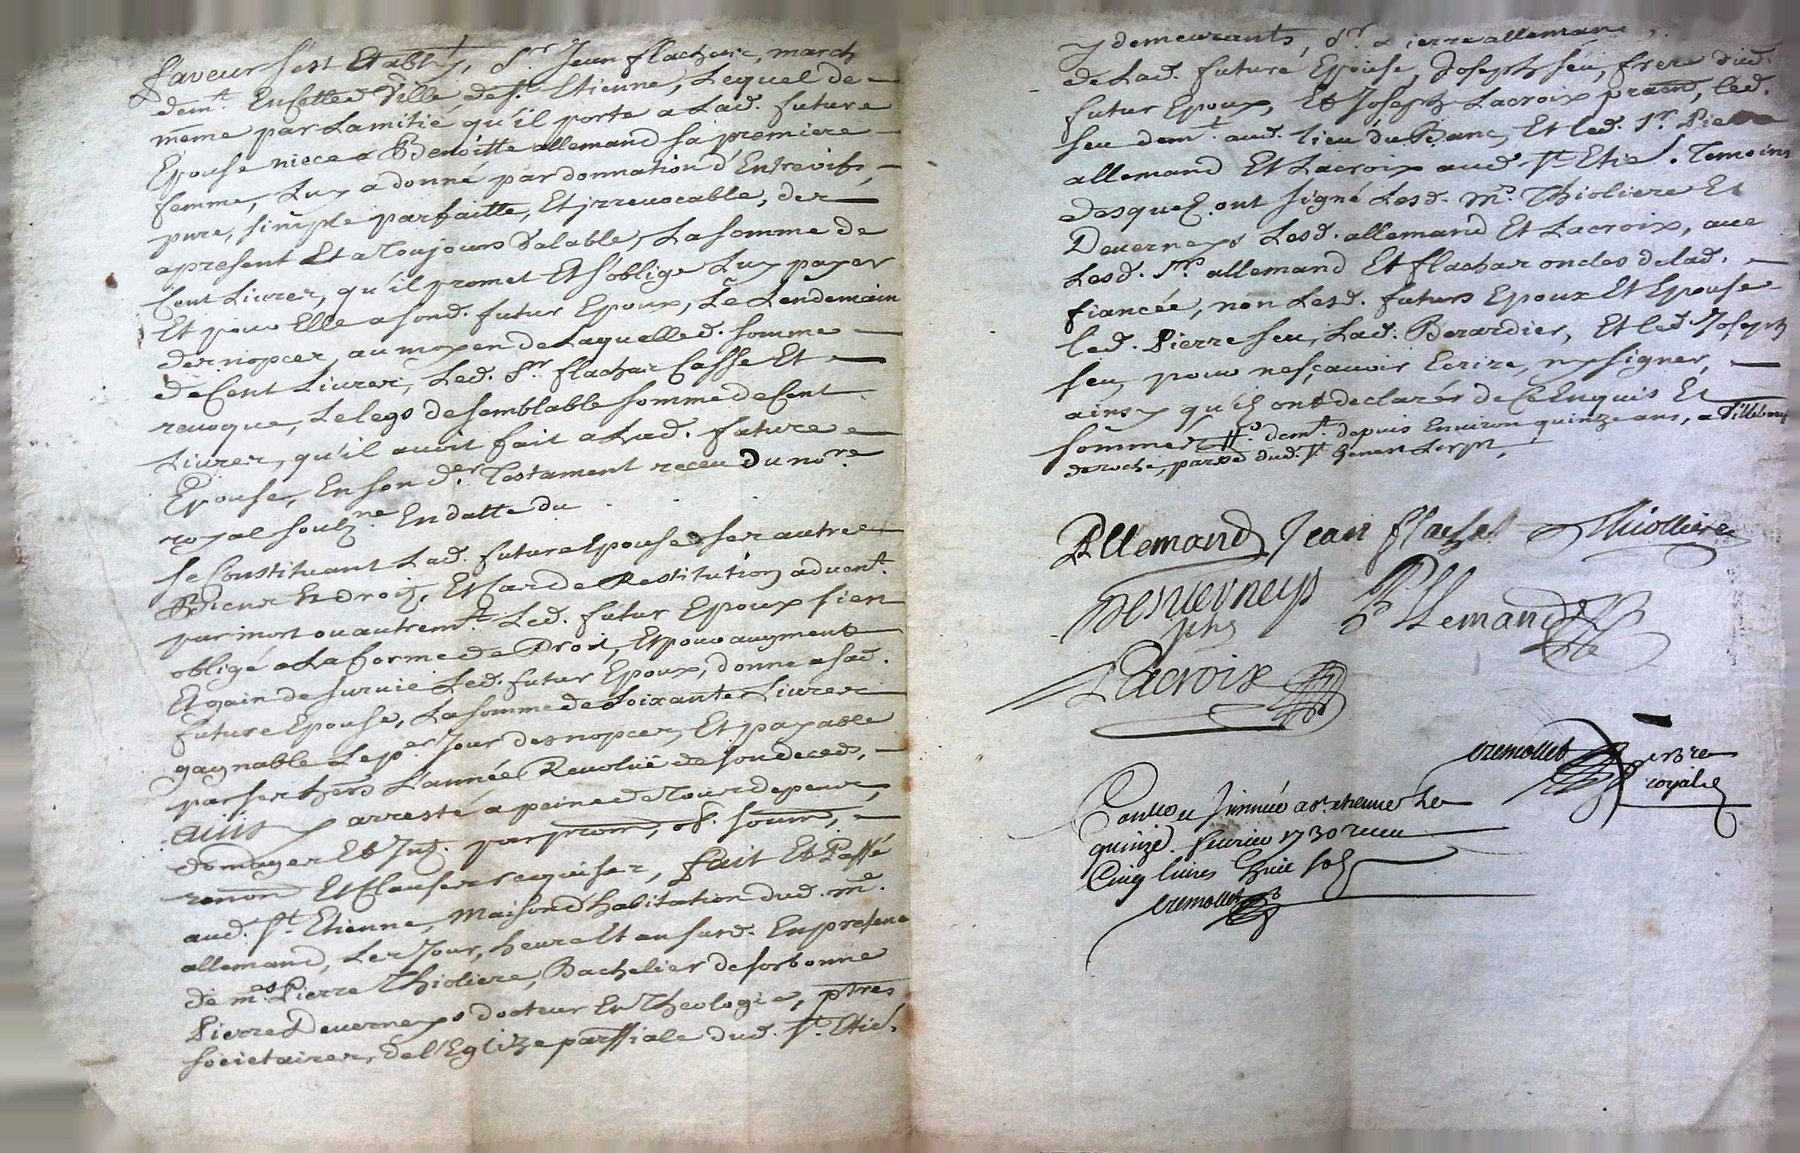 faveur s'est Etably, Sr. Jean flachar, march
demt. En cette d Ville de St. Etienne, Lequel de
meme par Lamitié qu'il porte a Lad. future
Epouse niece a Benoitte allemand sa premiere
femme, Luy a donné par donnation d'Entrevifs,
pure, simple parfaitte, Et jrrevocable, der
apresent Et a Toujours Valable, La somme de
Cent Livres, qu'il promet Et s'oblige Luy payer
Et pour Elle a sond. futur Epoux, Le Lendemain
des nopces, au moyen de Laquelle d. somme
de Cent Livres, Led. Sr. flachar Casse Et
revoque, Le legs de semblable somme de Cent
Livres, qu'il avoit fait a Lad. future
Epouse, En son der. Testament receu Du nore.
royal soubzne. En datte du
se Constituant Lad. future Epouse ses autres
Biens Et droitz, Et Cas de Restitution advent.
par mort ou autremt. Led. futur Epoux s'en
obligé a La forme de Droit, Et pour augment
Et gain de survie Led. futur Epoux, donne a sad.
future Epouse, La somme de Soixante Livres
gagnable Le per. Jour des nopces, Et payable
par ses hers. L'année Revolüe de son deceds,
ainsy arresté a peine de Tous depens,
domages Et Int. par prom, ob. soum,
renon Et Clauses requises, fait Et Passé
aud. St. Etienne, Maison d'habitation dud. me.
allemand, Les Jour, heure Et an susd. En presence
de mes. Pierre Thioliere, Bachelier de sorbonne
Pierre Deverneys docteur En Theologie, ptres
societaires, de l'Eglize parssiale dud. St. Etie.
y demeurants, Sr. Pierre allemand,
de Lad. future Epouse, Joseph seu, frere dud.
futur Epoux, Et Joseph Lacroix pratn, led.
seu demt. aud. lieu du Banc, Et led. Sr. Pierre
allemand Et Lacroix aud. St. Etie. Temoins
desquels ont signé Lesd. Mes. Thioliere Et
Deverneys Lesd. allemand Et Lacroix, avec
Lesd. Srs. allemand Et flachar oncles de lad.
fiancée, non Lesd. futurs Epoux Et Epouse
led. Pierre seu, Lad. Berardier, Et led. Joseph
seu, pour ne sçavoir Ecrire, ny signer,
ainsy qu'ils ont declarés de Ce Enquis Et
sommes demt. depuis Environ quinze ans, a Villebeuf
de roche, parse dud. St Genest Lerpt,
Allemand Jean flachat Thiolliere
Desverneys P Allemand
ptre
Lacroix
Cremollet nore
royal
Controllé a St etienne Le
quinze fevrier 1730 receu
Cinq livres huit sols
Cremollet